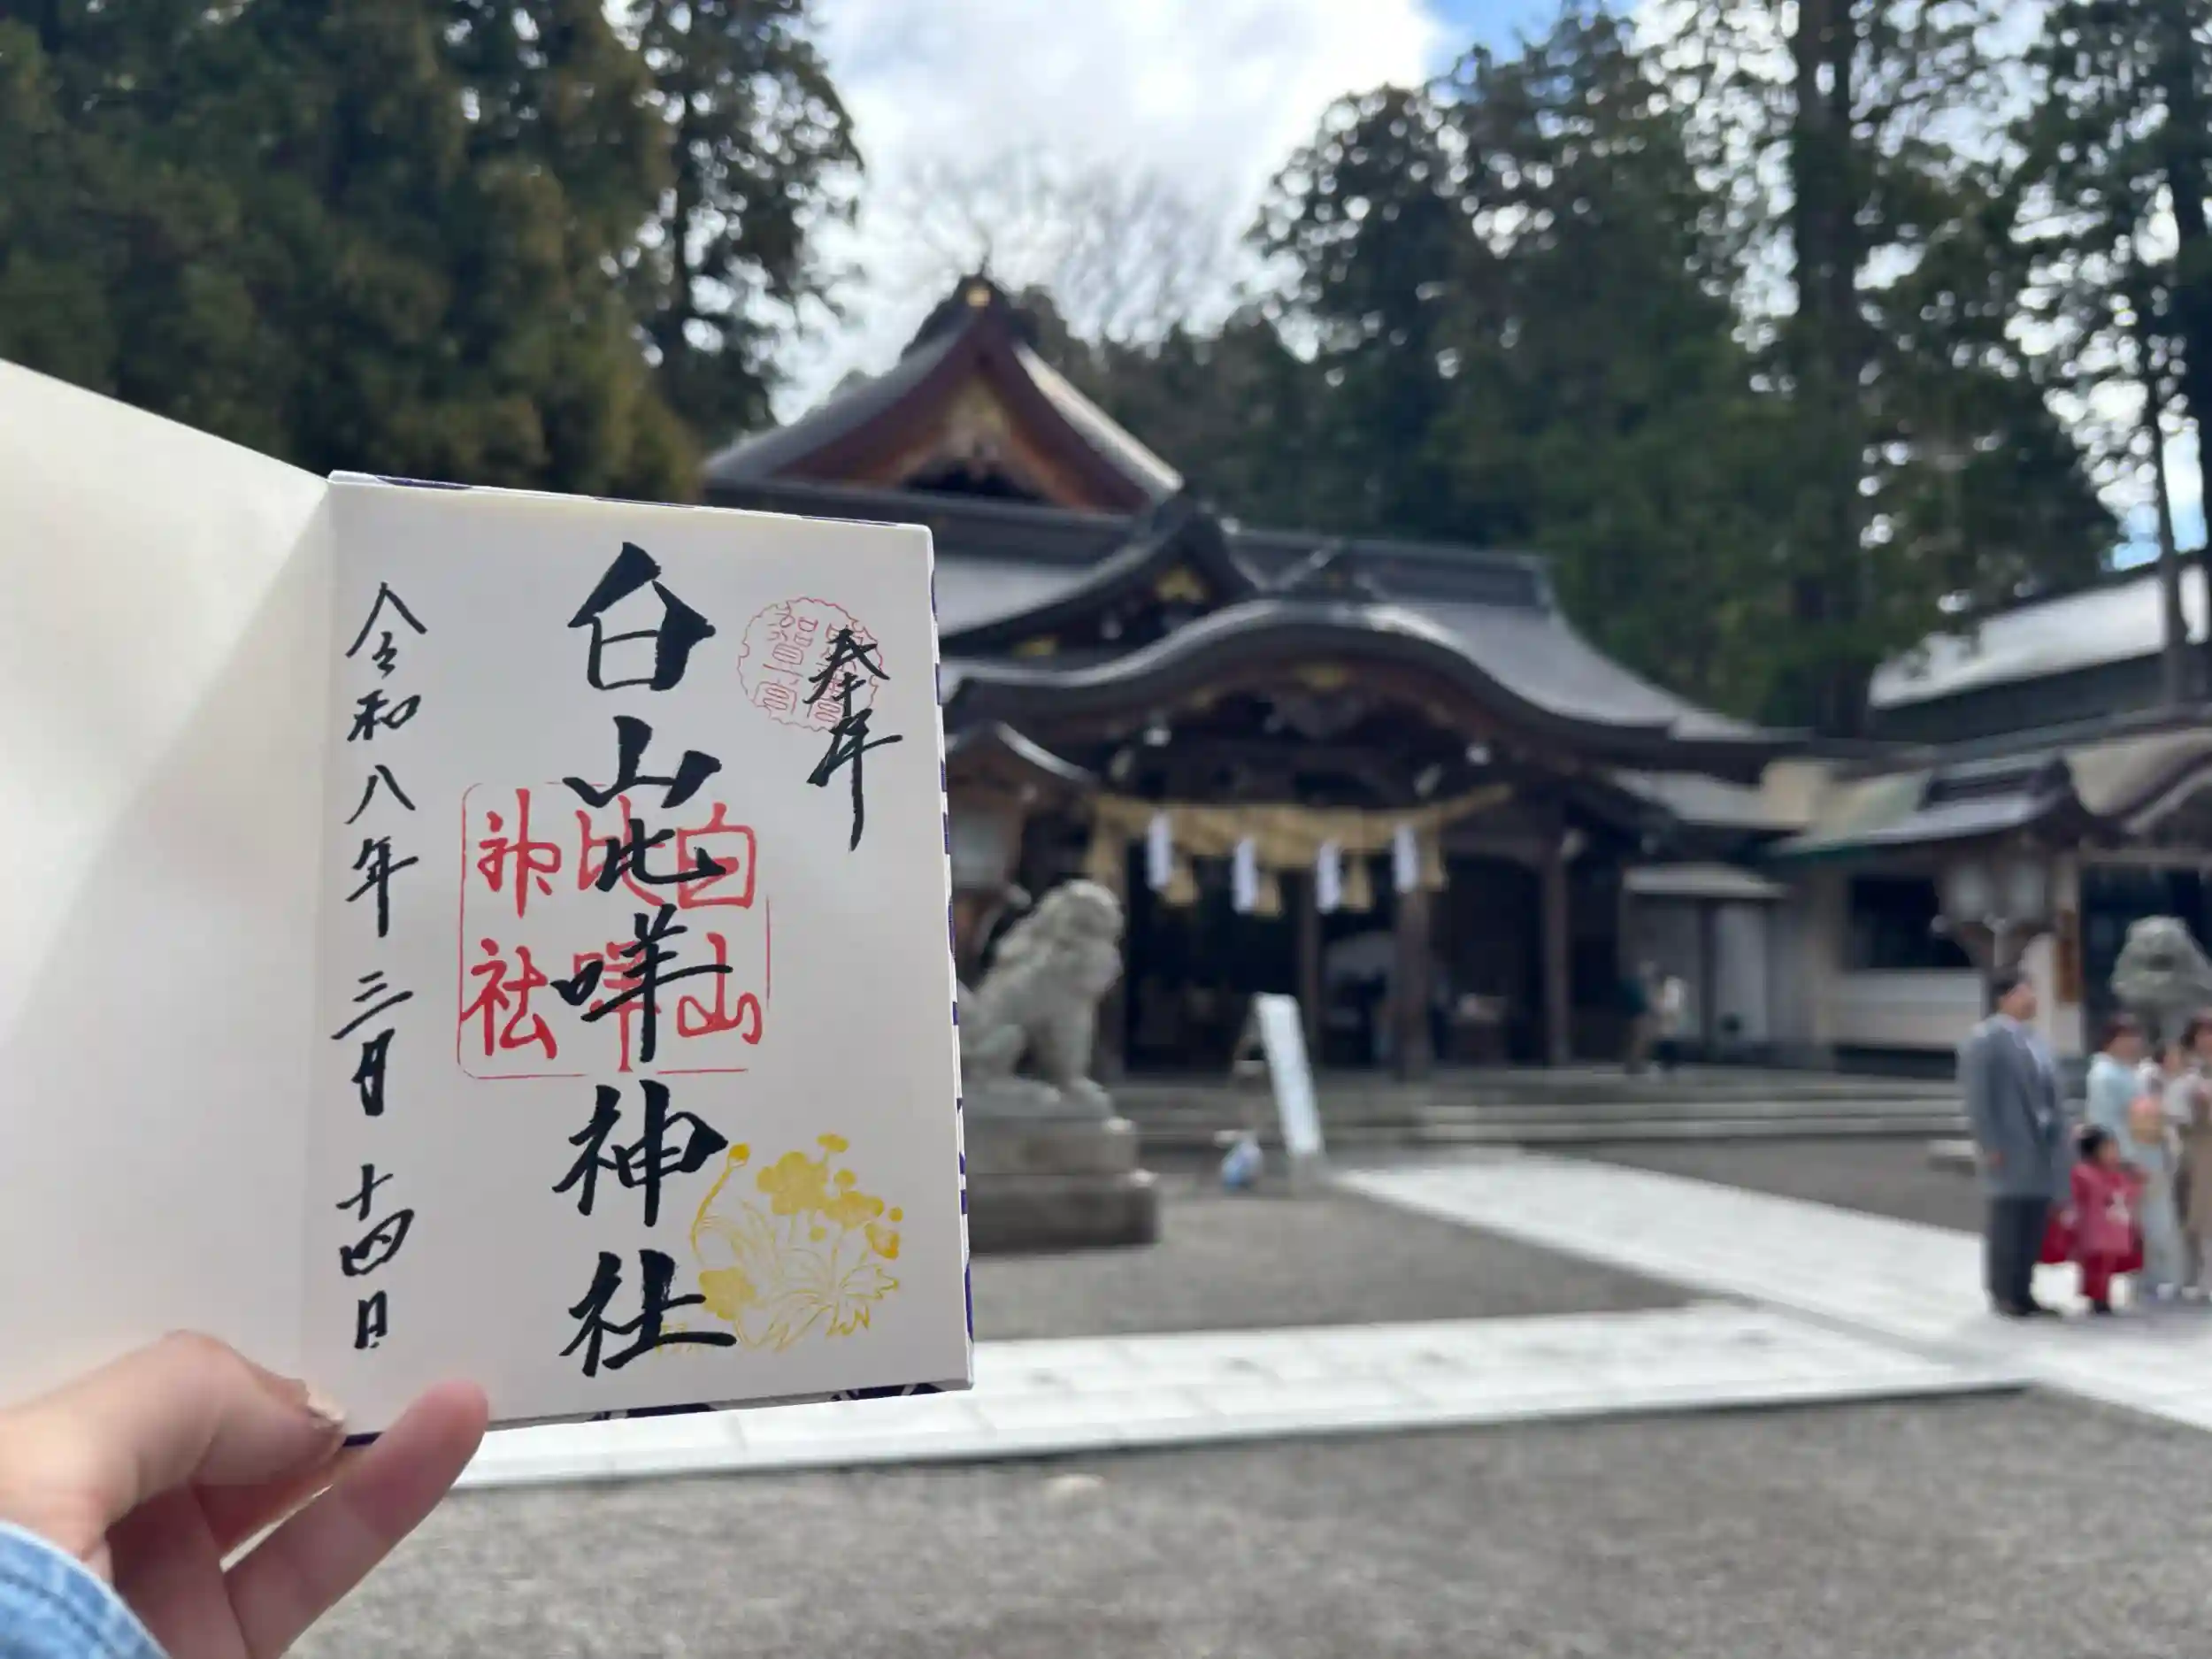 奉拝
白山比咩神社
白山
比咩
神社
令和八年三月十四日